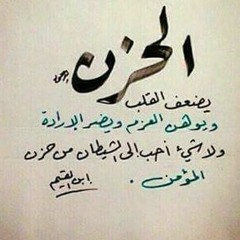 الحزن
يضعف القلب
ويوهن العزم ويضر الإرادة
ولا شيء أحب إلى الشيطان من حزن
المؤمن .
ابن القيم